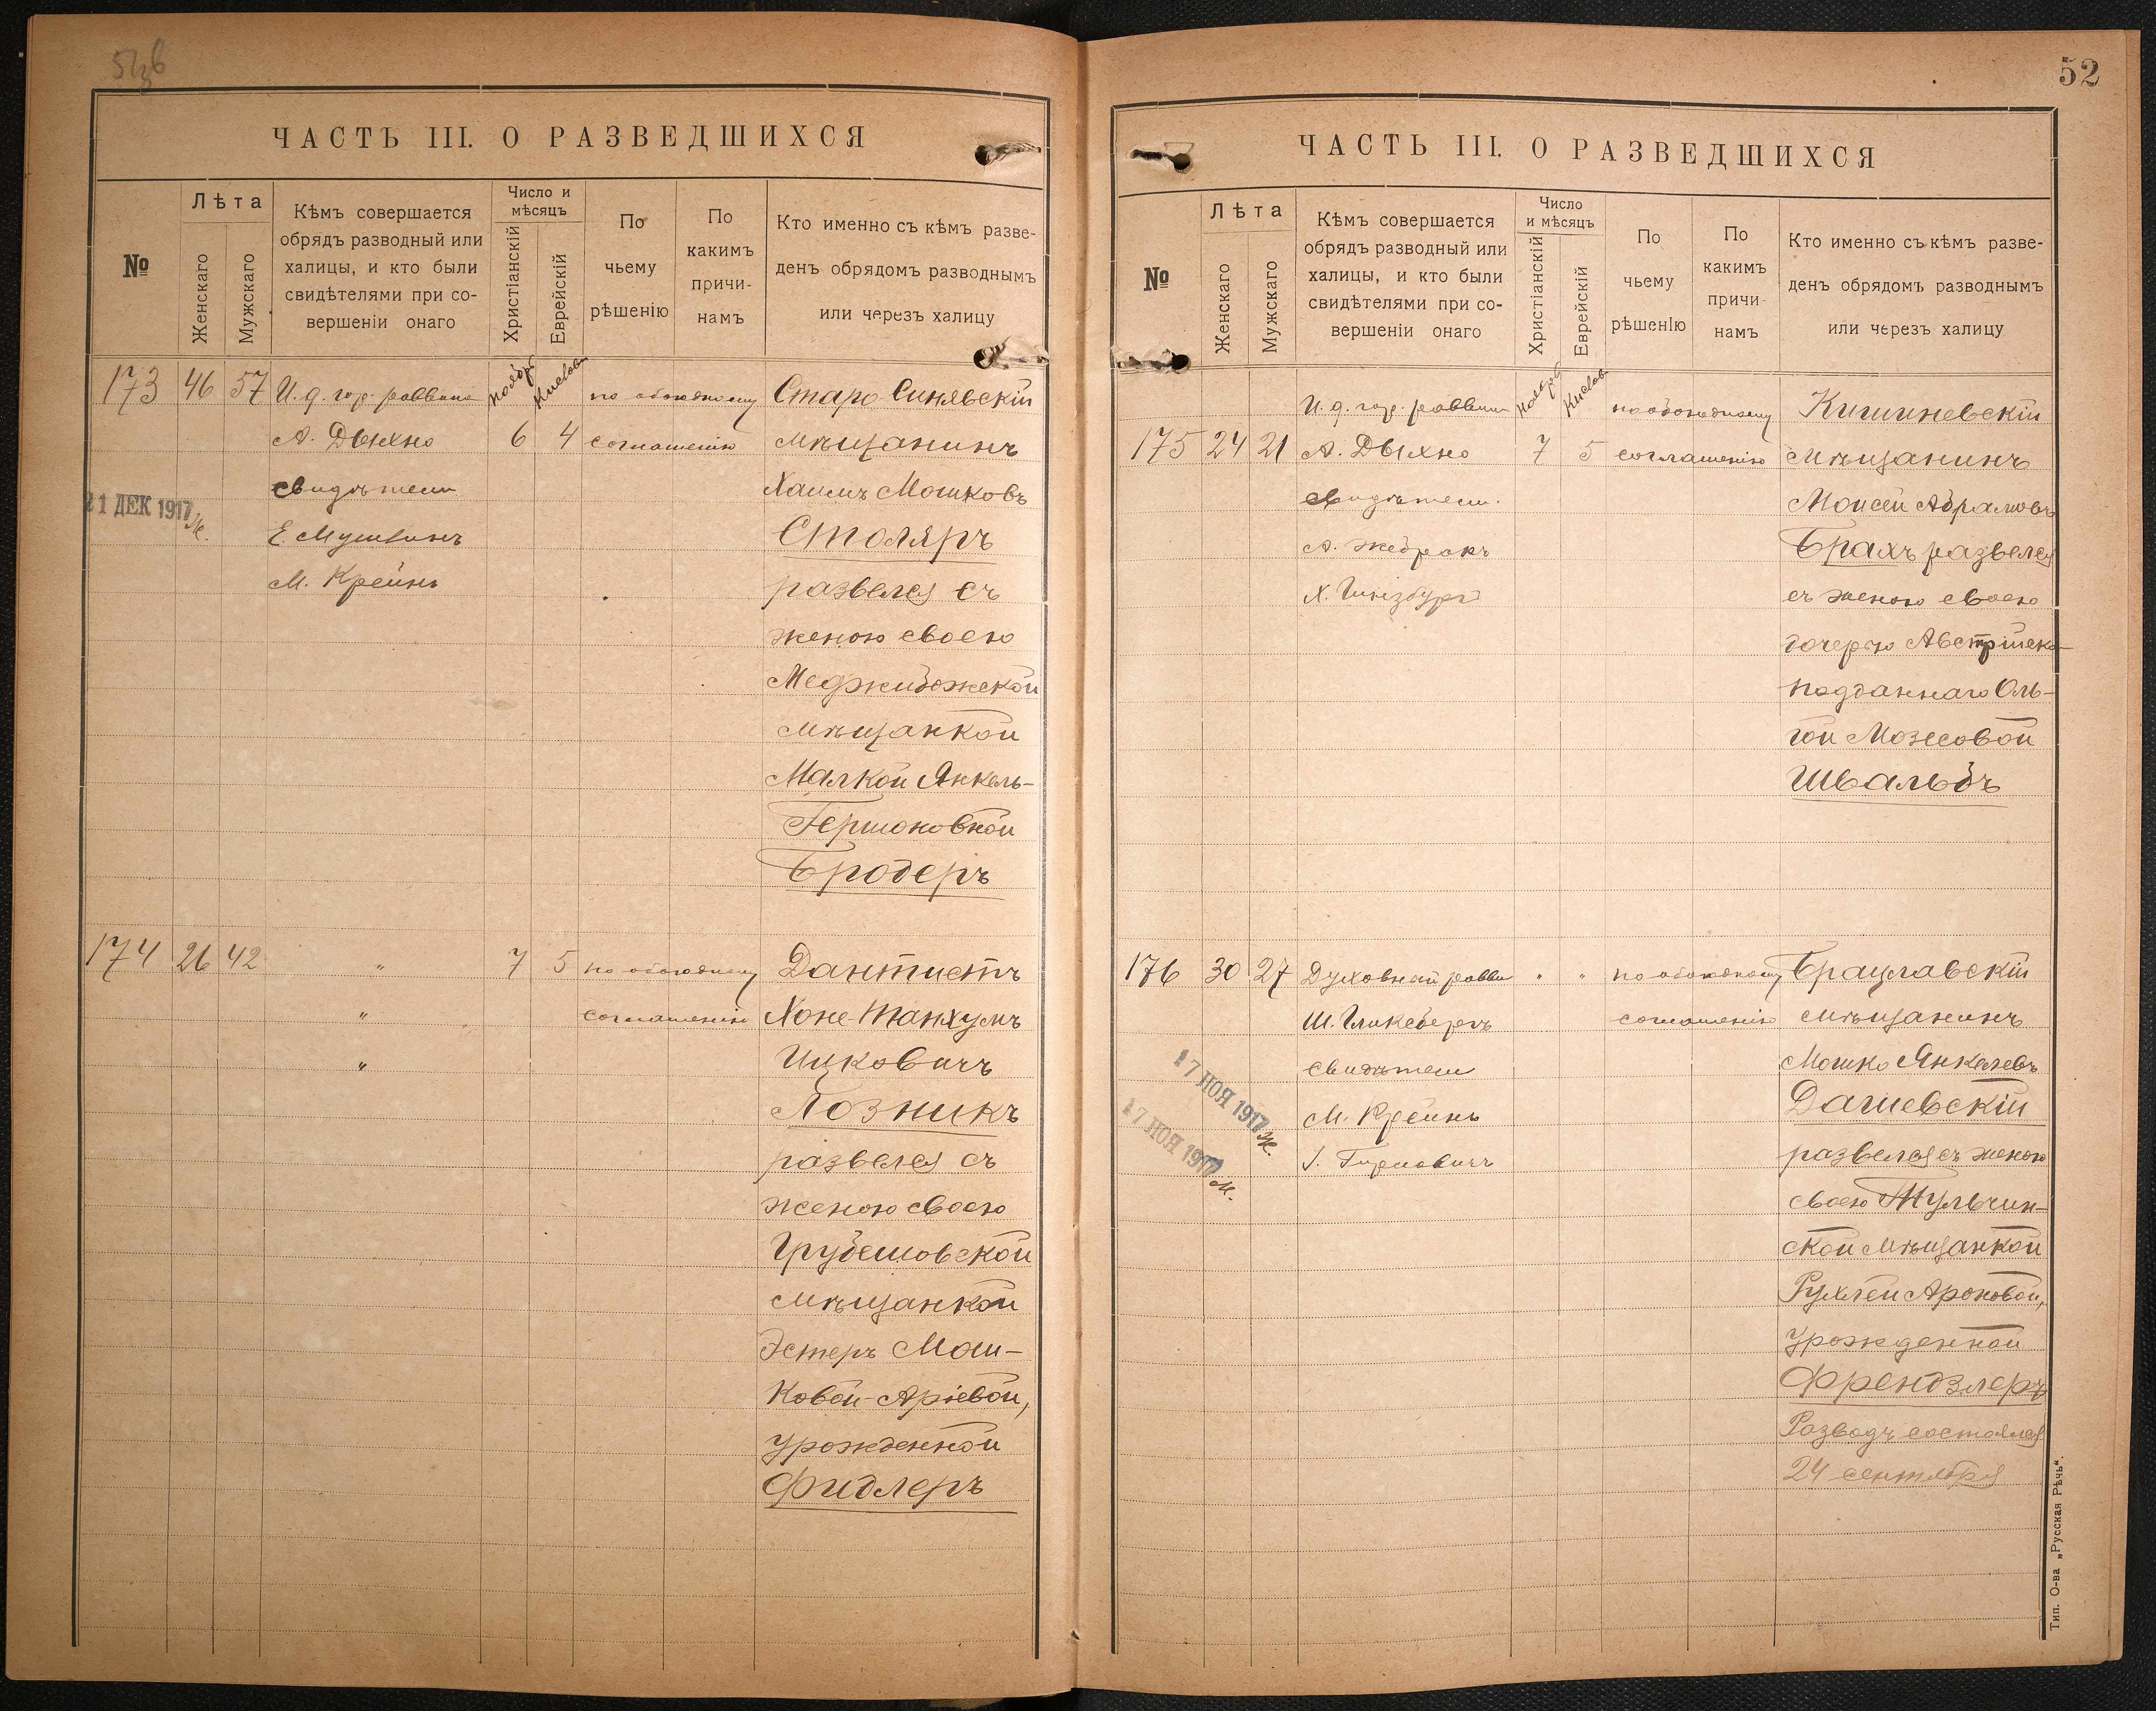 ЧАСТЬ III. О РАЗВЕДШИХСЯ
№
Лѣта
Женскаго
Мужскаго
Кѣмъ совершается
обрядъ разводный или
халицы, и кто были
свидѣтелями при со-
вершеніи онаго
Число и
мѣсяцъ
Христіанскій
Еврейскій
По
чьему
рѣшенію
По
какимъ
причи-
намъ
Кто именно съ кѣмъ разве-
денъ обрядомъ разводнымъ
или черезъ халицу
173 46 57 И. д. гор. раввина Ноябрь Кислевъ по обоюдному Старо-Синявскій
А. Дыхно 6 4 соглашенію мѣщанинъ
свидѣтели Хаимъ Мошковъ
21 ДЕК 1917 Е. Столяръ
М. Крейнъ развелся съ
женою своею
Меджибожской
мѣщанкой
Малкой Янкель-
Гершоновной
Бродеръ
174 26 42 " 7 5 по обоюдному Дантистъ
" соглашенію Хоне-Танхумъ
" Ицковичъ
Лозникъ
развелся съ
женою своею
Грубешовской
мѣщанкой
Эстеръ Мош-
ковой-Аріевой,
урожденной
Фидлеръ
52
ЧАСТЬ III. О РАЗВЕДШИХСЯ
№
Лѣта
Женскаго
Мужскаго
Кѣмъ совершается
обрядъ разводный или
халицы, и кто были
свидѣтелями при со-
вершеніи онаго
Число
и мѣсяцъ
Христіанскій
Еврейскій
По
чьему
рѣшенію
По
какимъ
причи-
намъ
Кто именно съ кѣмъ разве-
денъ обрядомъ разводнымъ
или черезъ халицу
И. д. гор. раввина Ноябрь Кислевъ по обоюдному Кишиневскій
175 24 21 А. Дыхно 7 5 соглашенію мѣщанинъ
свидѣтели Моисей Абрамовъ
А. Жебракъ Брахъ развелся
Х. Гинзбургъ съ женою своею
дочерью Австрійско-
подданнаго Оль-
гой Мозесовой
Швальбъ
176 30 27 Духовный равви " " по обоюдному Брацлавскій
Ш. Гликсбергъ соглашенію мѣщанинъ
свидѣтели Мошко Янкелевъ
17 НОЯ 1917 М. Крейнъ Дашевскій
17 НОЯ 1917 развелся съ женою
своею Тульчин-
ской мѣщанкой
Рухлей Ароновой,
урожденной
Френдзлеръ
Разводъ состоялся
24 сентября
Тип. О-ва „Русская Рѣчь“.